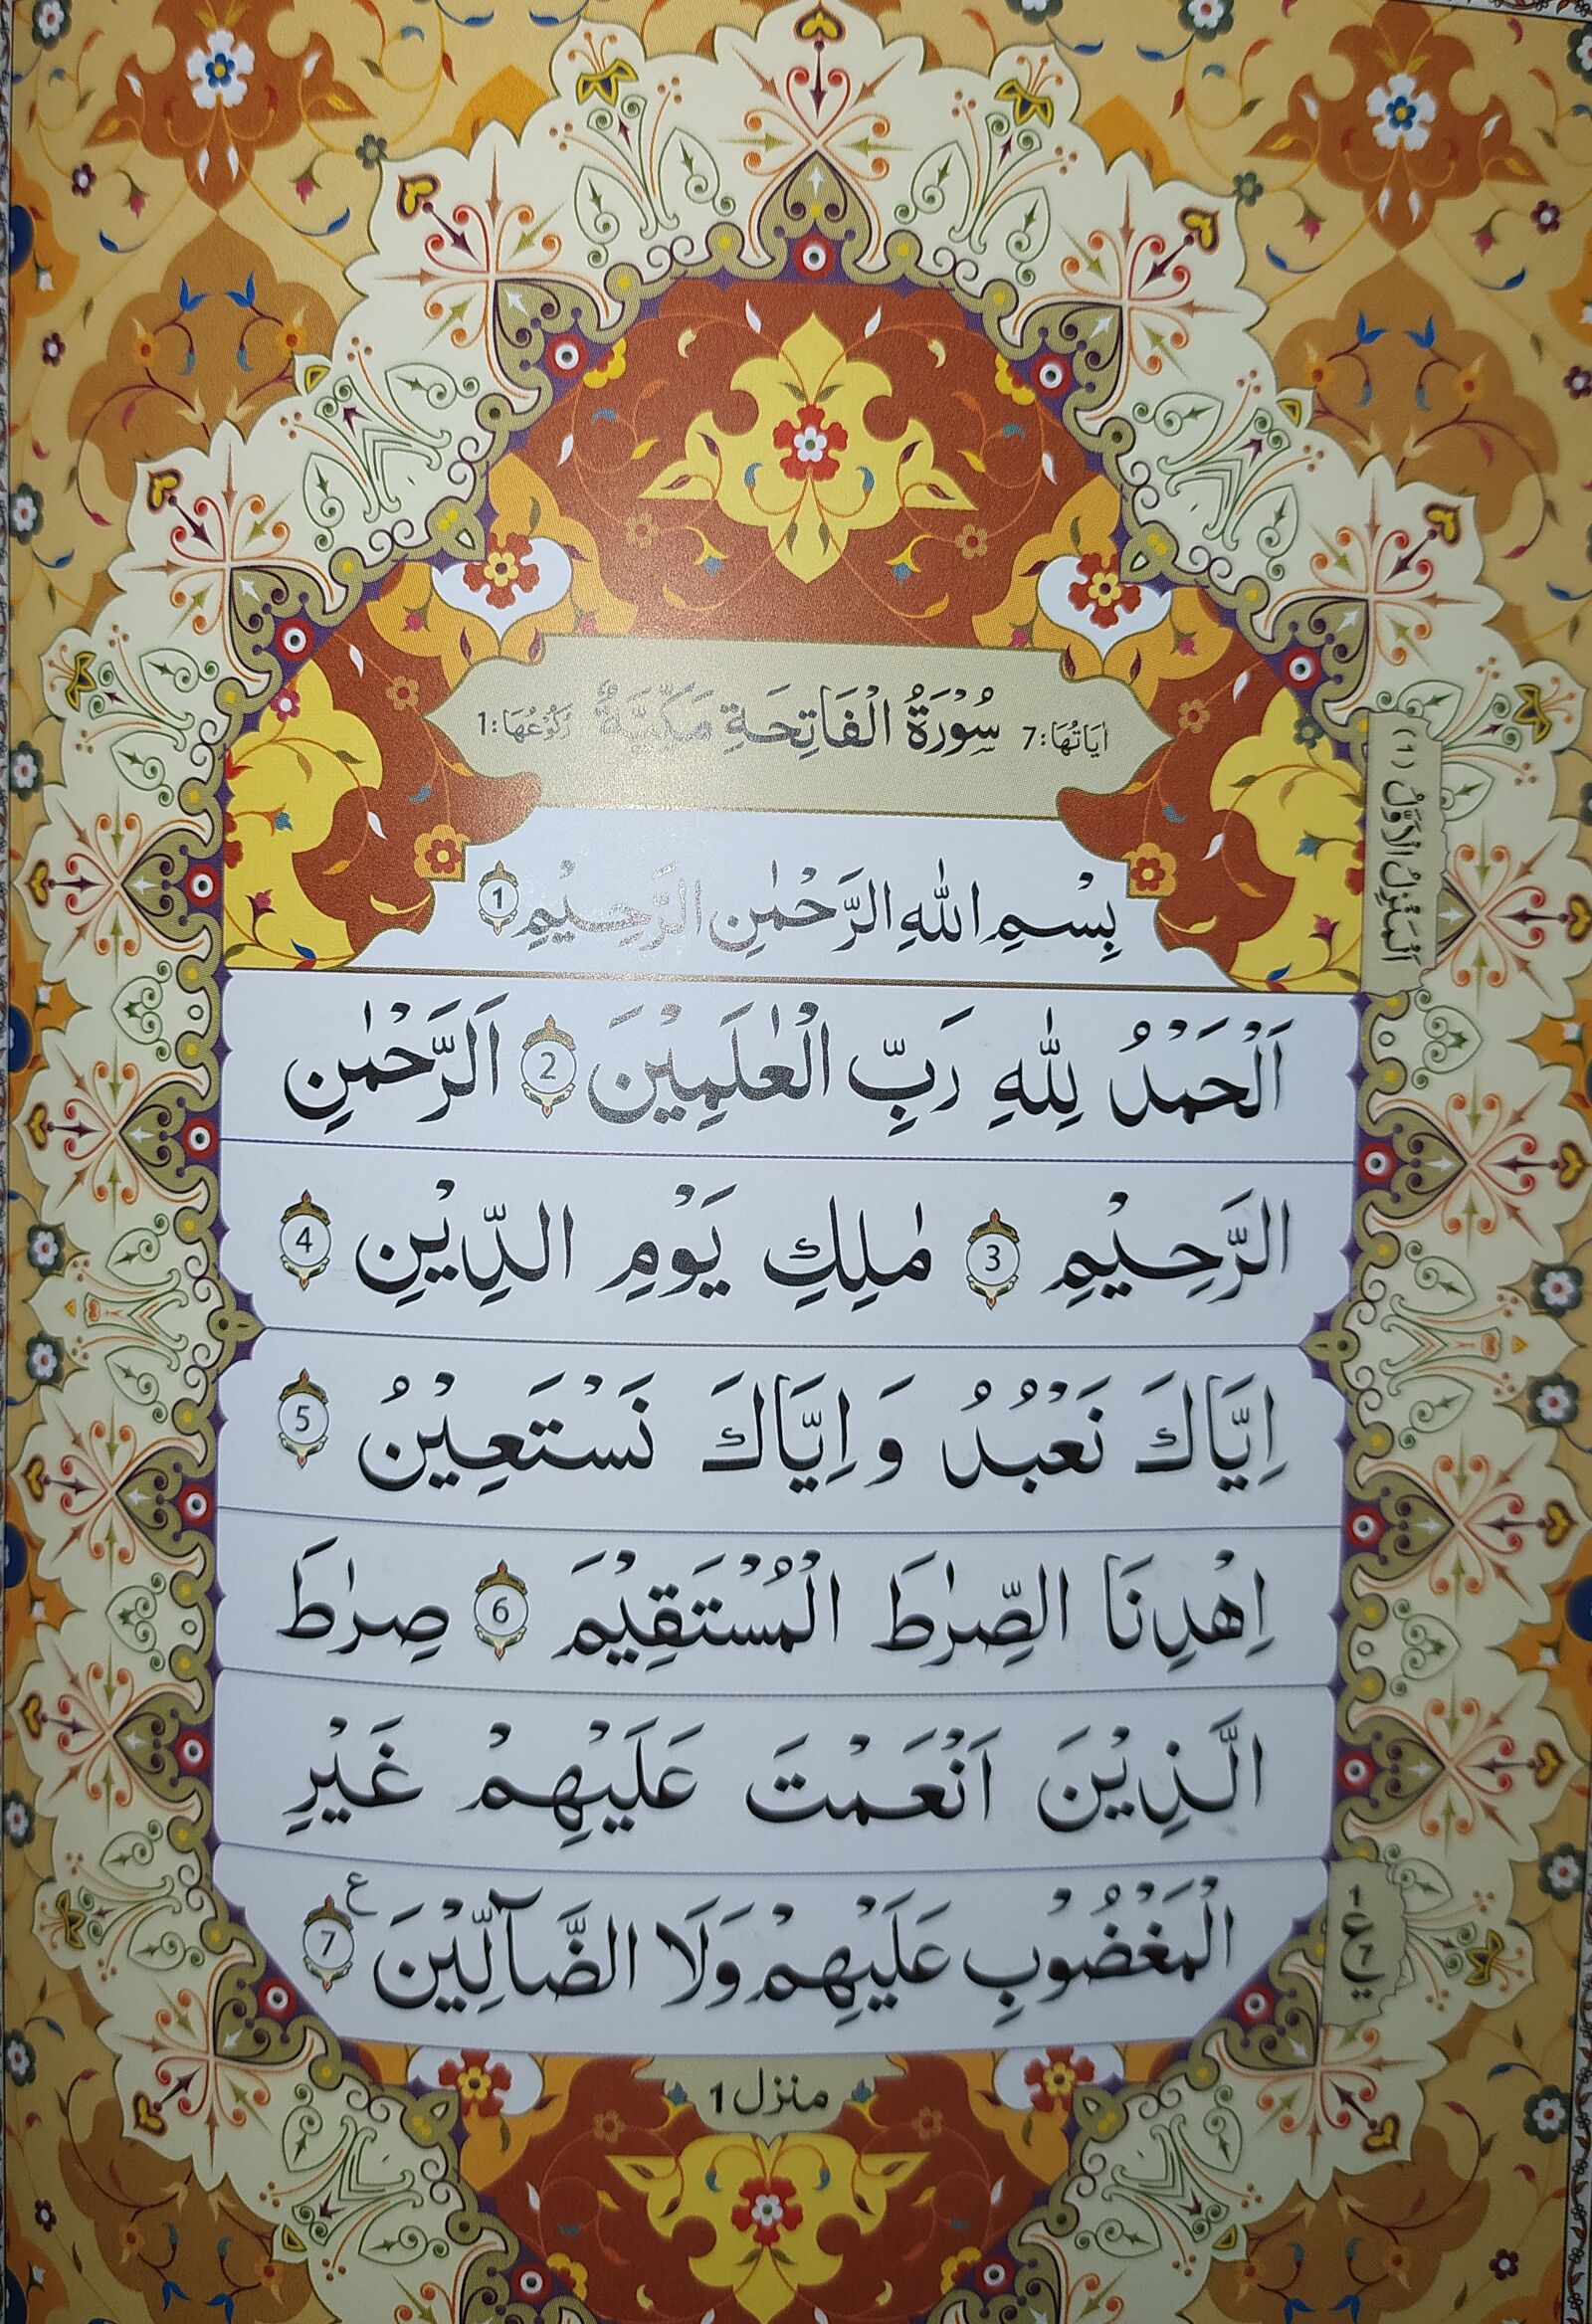 اٰيَاتُهَا:7 سُوْرَةُ الْفَاتِحَةِ مَكِّيَّةٌ رُكُوْعُهَا:1
اَلْمَنْزِلُ الْاَوَّلُ (1)
بِسْمِ اللّٰهِ الرَّحْمٰنِ الرَّحِيْمِ 1
اَلْحَمْدُ لِلّٰهِ رَبِّ الْعٰلَمِيْنَ 2 اَلرَّحْمٰنِ
الرَّحِيْمِ 3 مٰلِكِ يَوْمِ الدِّيْنِ 4
اِيَّاكَ نَعْبُدُ وَ اِيَّاكَ نَسْتَعِيْنُ 5
اِهْدِنَا الصِّرٰطَ الْمُسْتَقِيْمَ 6 صِرٰطَ
الَّذِيْنَ اَنْعَمْتَ عَلَيْهِمْ غَيْرِ
الْمَغْضُوْبِ عَلَيْهِمْ وَلَا الضَّآلِّيْنَ 7 ع
1 ع 7
منزل 1